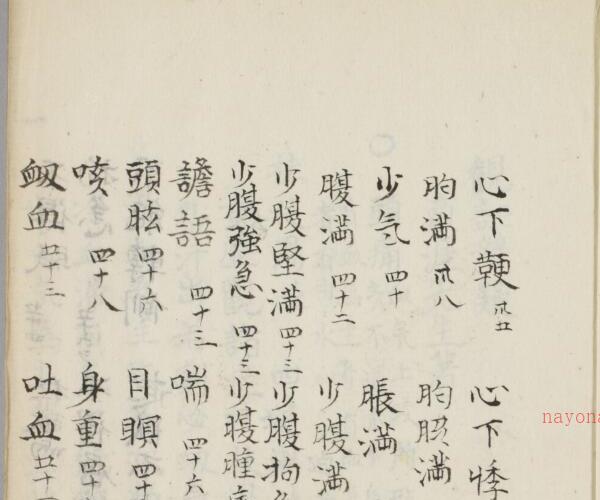 心下鞕 卅五 心下悸
胸満 卅八 胸脇満
少气 四十 脹満
腹満 四十二 少腹満
少腹堅満 四十三 少腹拘急
少腹強急 四十三 少腹腫
譫語 四十三 喘 四十六
頭眩 四十六 目瞑 四十
咳 四十八 身重 四十
衂血 五十三 吐血 五十
nayona